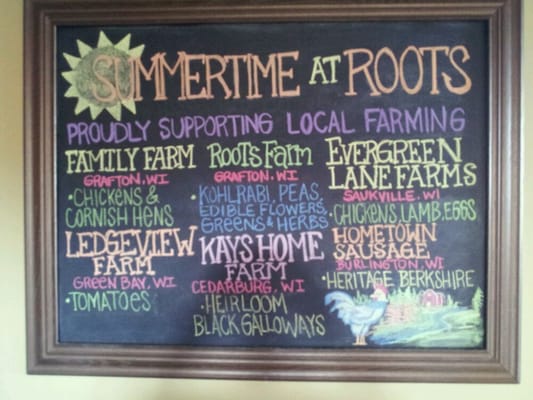 SUMMERTIME AT ROOTS
PROUDLY SUPPORTING LOCAL FARMING
FAMILY FARM
GRAFTON, WI
• CHICKENS &
CORNISH HENS
ROOTS FARM
GRAFTON, WI
• KOHLRABI, PEAS,
EDIBLE FLOWERS,
GREENS & HERBS
EVERGREEN
LANE FARMS
SAUKVILLE, WI
• CHICKENS, LAMB, EGGS
LEDGEVIEW
FARM
GREEN BAY, WI
• TOMATOES
KAYS HOME
FARM
CEDARBURG, WI
• HEIRLOOM
BLACK GALLOWAYS
HOMETOWN
SAUSAGE
BURLINGTON, WI
• HERITAGE BERKSHIRE